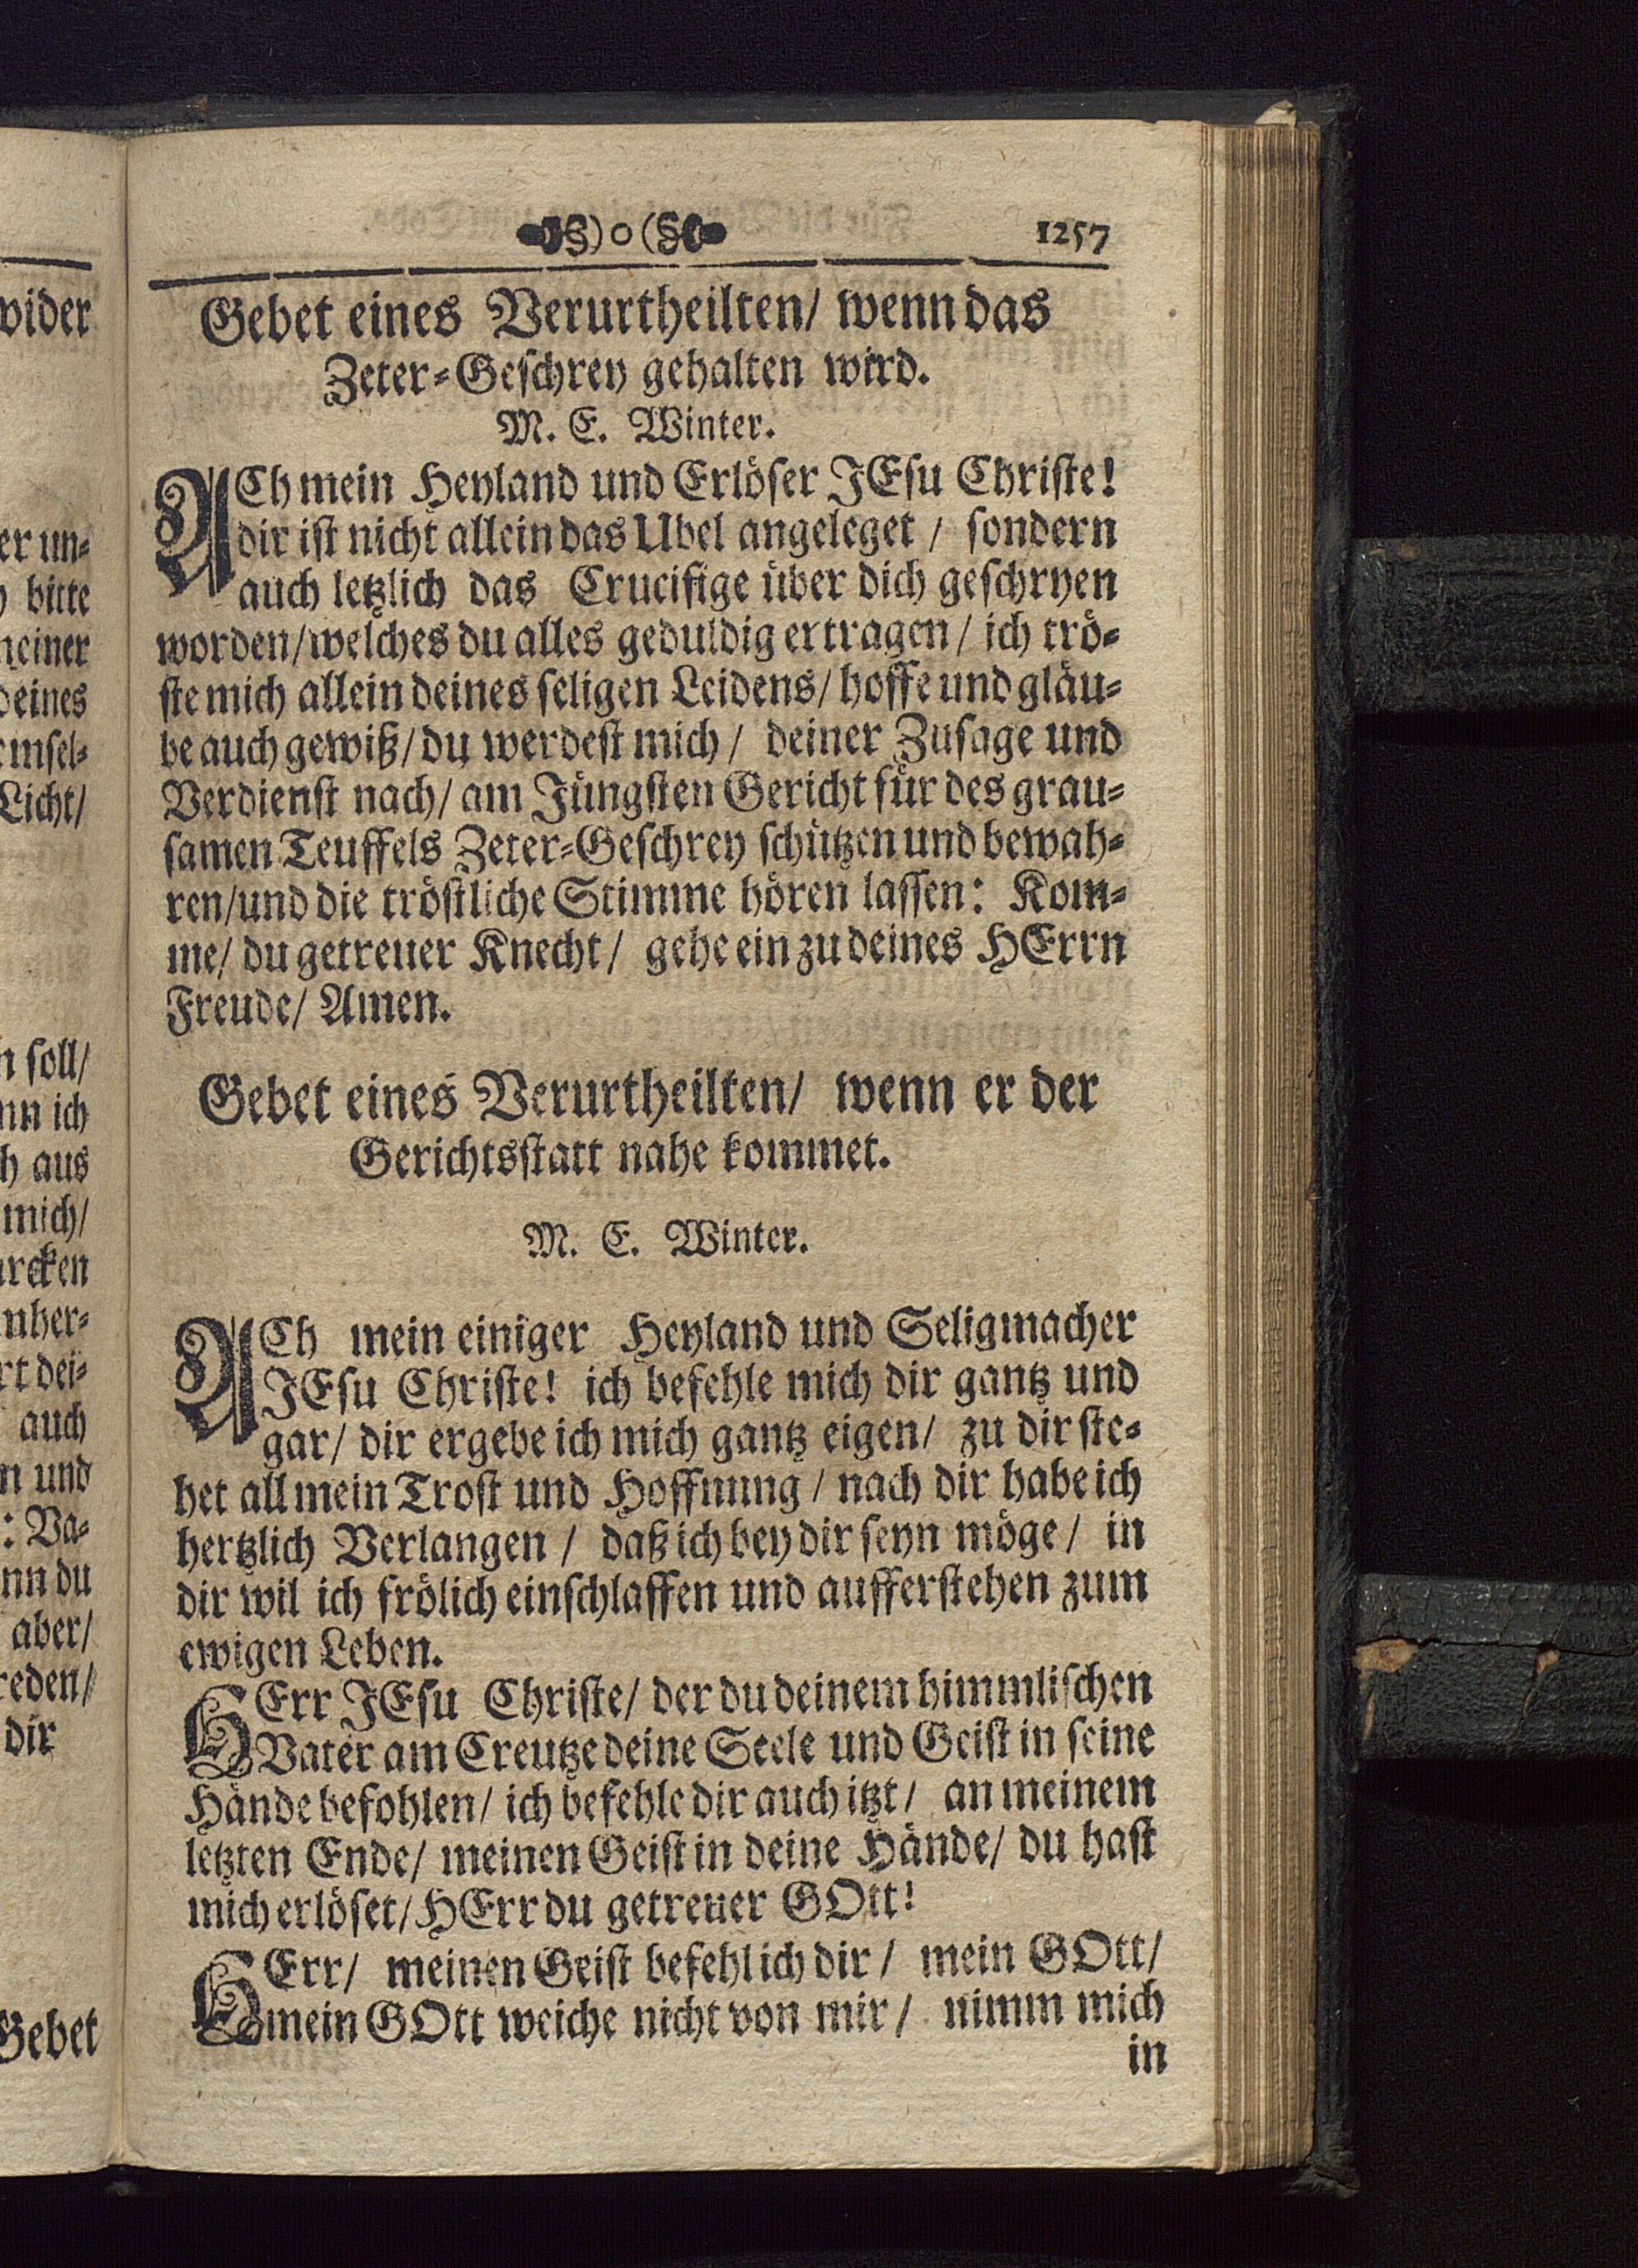 §)o(§ 1257
Gebet eines Verurtheilten/ wenn das
Zeter-Geschrey gehalten wird.
M. E. Winter.
ACh mein Heyland und Erlöser JEsu Christe!
dir ist nicht allein das Ubel angeleget / sondern
auch letzlich das Crucifige über dich geschryen
worden/welches du alles geduldig ertragen/ ich trö-
ste mich allein deines seligen Leidens/ hoffe und gläu-
be auch gewiß/ du werdest mich / deiner Zusage und
Verdienst nach/ am Jüngsten Gericht für des grau-
samen Teuffels Zeter-Geschrey schützen und bewah-
ren/und die tröstliche Stimme hören lassen: Kom-
me/ du getreuer Knecht/ gehe ein zu deines HErrn
Freude/ Amen.
Gebet eines Verurtheilten/ wenn er der
Gerichtsstatt nahe kommet.
M. E. Winter.
ACh mein einiger Heyland und Seligmacher
JEsu Christe! ich befehle mich dir gantz und
gar/ dir ergebe ich mich gantz eigen/ zu dir ste-
het all mein Trost und Hoffnung / nach dir habe ich
hertzlich Verlangen / daß ich bey dir seyn möge / in
dir wil ich frölich einschlaffen und aufferstehen zum
ewigen Leben.
HErr JEsu Christe/ der du deinem himmlischen
Vater am Creutze deine Seele und Geist in seine
Hände befohlen/ ich befehle dir auch itzt / an meinem
letzten Ende/ meinen Geist in deine Hände/ du hast
mich erlöset/HErr du getreuer GOtt!
HErr/ meinen Geist befehl ich dir / mein GOtt/
mein GOtt weiche nicht von mir / nimm mich
in
wider
er un-
bitte
meiner
deines
emsel-
Licht/
soll/
nn ich
aus
mich/
rcken
nher-
rt dei-
auch
n und
: Va-
nn du
aber/
reden/
dir
Gebet